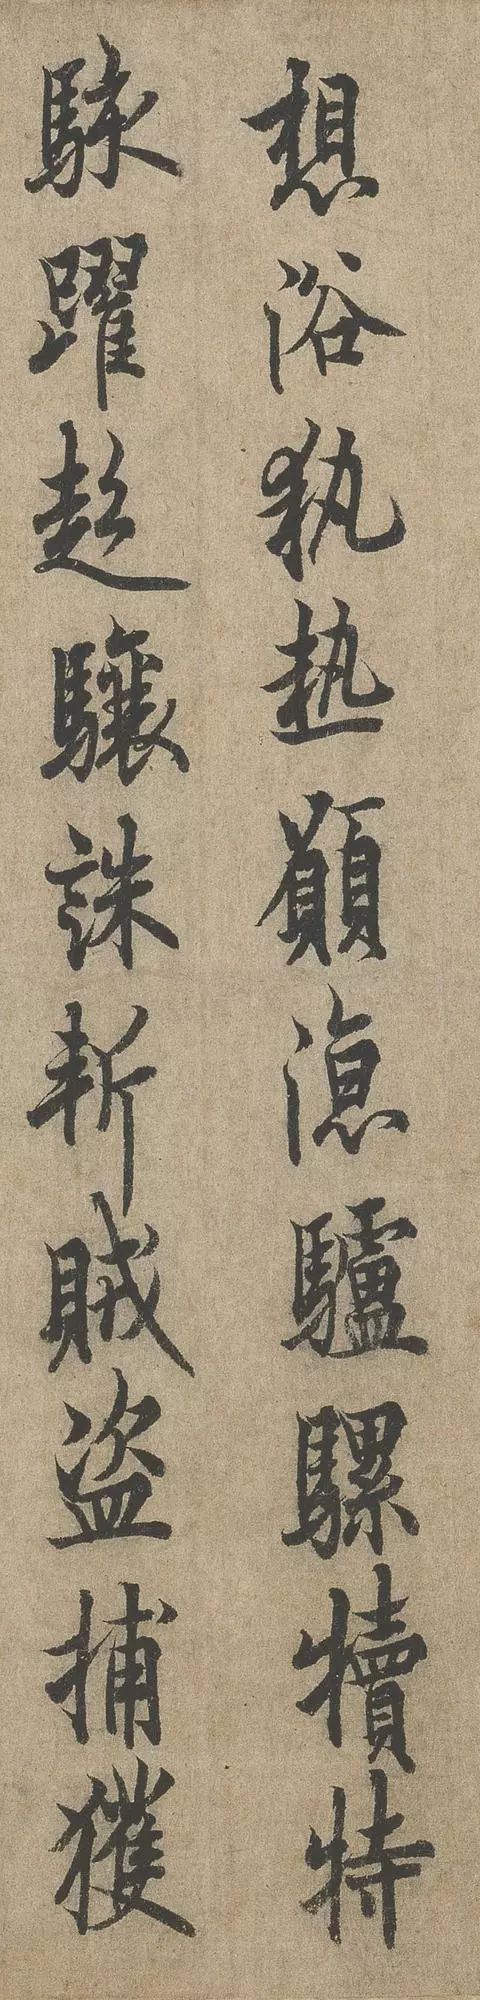 想浴執熱願涼驢騾犢特
駭躍超驤誅斬賊盜捕獲